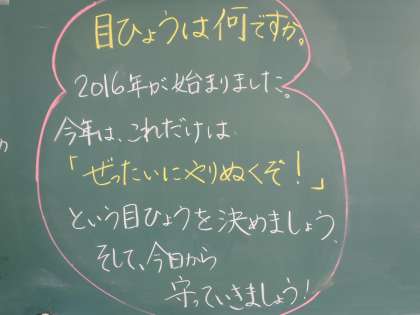 目ひょうは何ですか。
2016年が始まりました。
今年は、これだけは
「ぜったいにやりぬくぞ!」
という目ひょうを決めましょう。
そして、今日から
守っていきましょう!